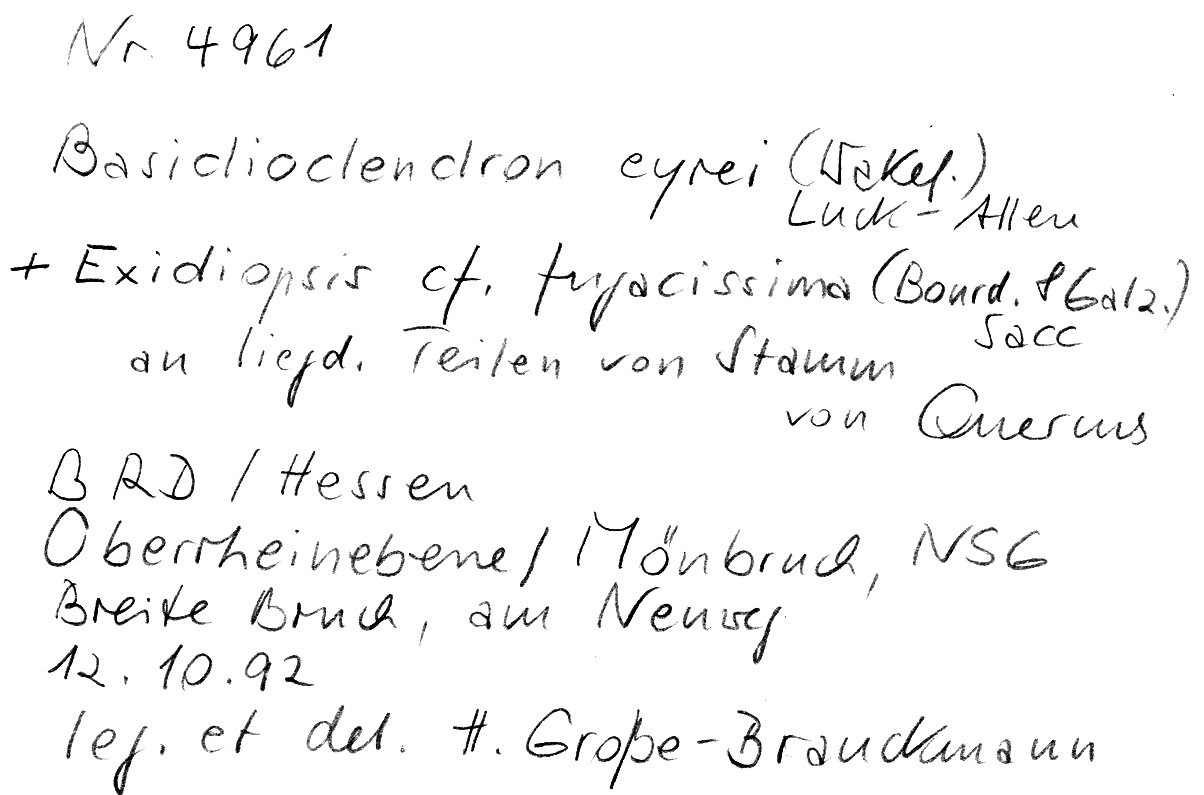 Nr. 4961
Basidiodendron eyrei (Wakef.)
Luck-Allen
+ Exidiopsis cf. fugacissima (Bourd. & Galz.)
Sacc
an liegd. Teilen von Stamm
von Quercus
BRD / Hessen
Oberrheinebene / Mönbruch, NSG
Breite Bruch, am Neuweg
12.10.92
leg. et det. H. Große-Brauckmann